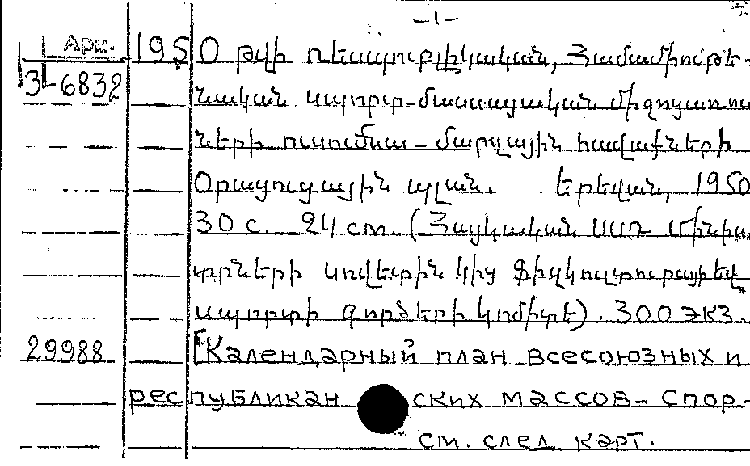 -1-
Арм. 1950 թվի ռեսպուբլիկական, Համամիութե-
3-6832 նական սպորտ-մասսայական միջոցառում
ների ուսումնա-մարզային հավաքների
Օրացուցային պլան. Երեվան, 1950
30 с. 21 cm. (Հայկական ՍՍՌ Մինիս
տրների սովետին կից Ֆիզկուլտուրայի եվ
սպորտի գործերի կոմիտե). 300 экз.
29988 [Календарный план всесоюзных и
республиканских массов-спор-
см. след карт.